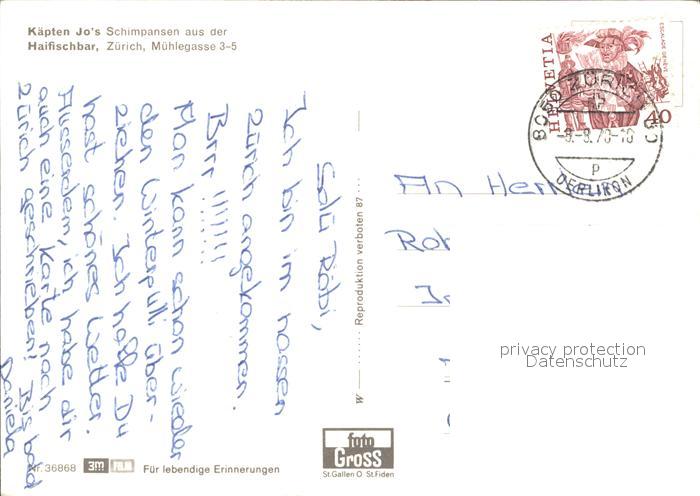 Käpten Jo's Schimpansen aus der
Haifischbar, Zürich, Mühlegasse 3-5
HELVETIA
ESCALADE GENÈVE
40
8050 ZÜRICH
-8.-9.78-18
P
OERLIKON
Salü Röbi,
Ich bin im nassen
Zürich angekommen.
Brrr !!!!!!!
Man kann schon wieder
den Winterpulli über-
ziehen. Ich hoffe Du
hast schönes Wetter.
Ausserdem, ich habe dir
auch eine Karte nach
Zürich geschrieben! Bis bald
Daniela
W ——— ...... Reproduktion verboten 87 ...... ———
An Herrn
privacy protection
Datenschutz
foto
Gross
St.Gallen O St.Fiden
Nr. 36868 3M FILM Für lebendige Erinnerungen